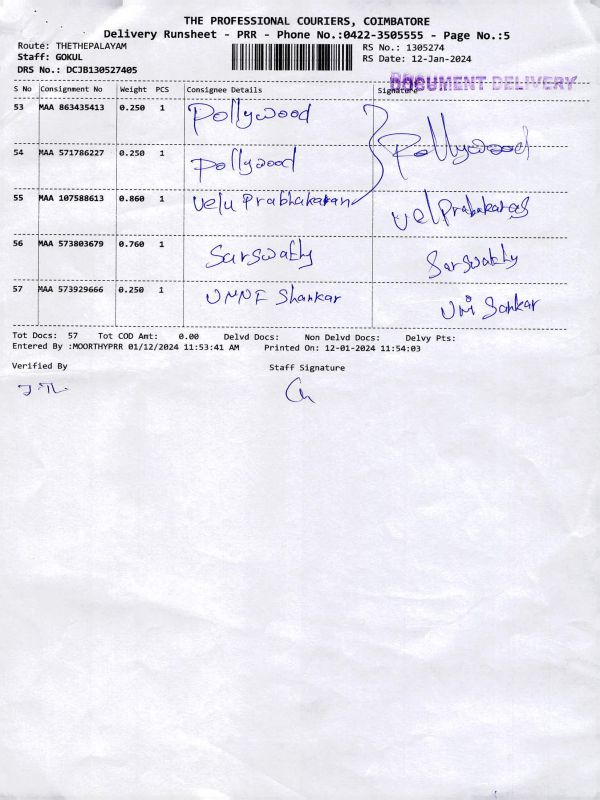 THE PROFESSIONAL COURIERS, COIMBATORE
Delivery Runsheet - PRR - Phone No.:0422-3505555 - Page No.:5
Route: THETHEPALAYAM RS No.: 1305274
Staff: GOKUL RS Date: 12-Jan-2024
DRS No.: DCJB130527405
DOCUMENT DELIVERY
S No Consignment No Weight PCS Consignee Details Signature
53 MAA 863435413 0.250 1 Pollywood
Pollywood
54 MAA 571786227 0.250 1 Pollywood
55 MAA 107588613 0.860 1 Velu Prabhakaran
56 MAA 573803679 0.760 1 Sarswathy Sarswathy
57 MAA 573929666 0.250 1 Shankar Sankar
Tot Docs: 57 Tot COD Amt: 0.00 Delvd Docs: Non Delvd Docs: Delvy Pts:
Entered By :MOORTHYPRR 01/12/2024 11:53:41 AM Printed On: 12-01-2024 11:54:03
Verified By Staff Signature